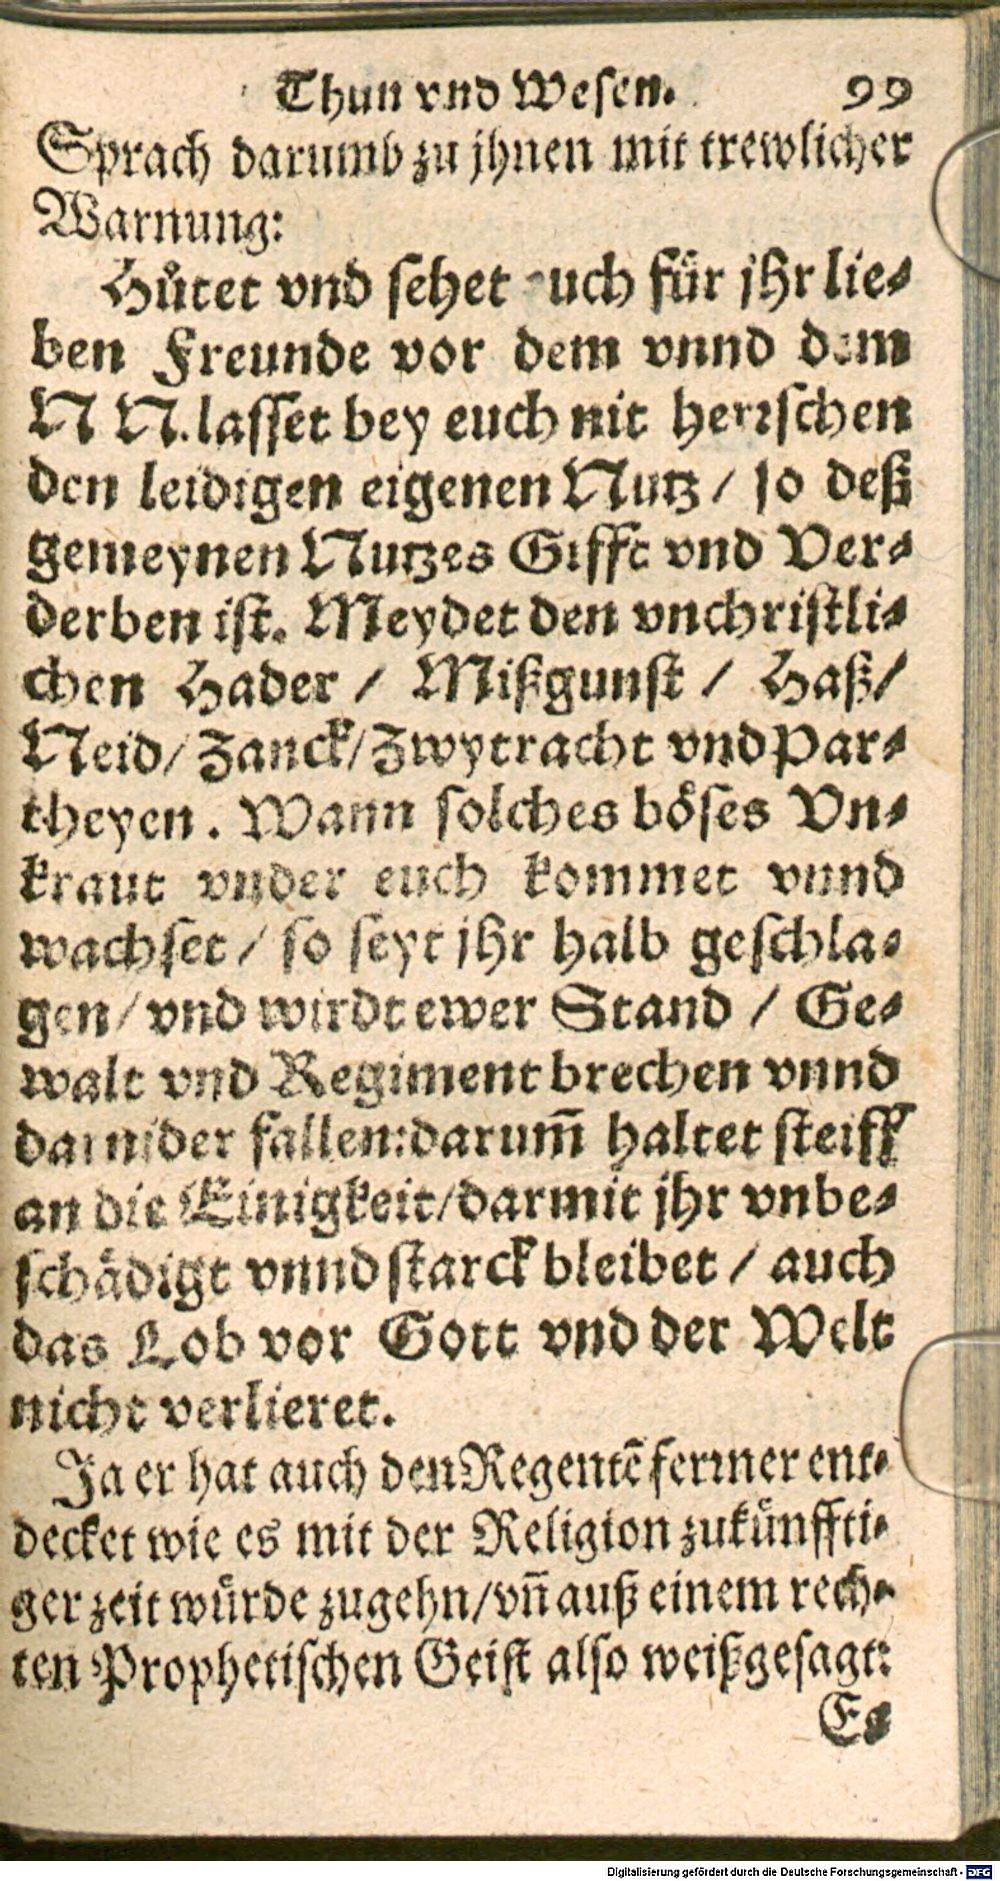 Thun vnd Wesen. 99
Sprach darumb zu jhnen mit trewlicher
Warnung:
Huͤtet vnd sehet euch für jhr lie⸗
ben Freunde vor dem vnnd dem
N N. lasset bey euch nit herrschen
den leidigen eigenen Nutz / so deß
gemeynen Nutzes Gifft vnd Ver⸗
derben ist. Meydet den vnchristli⸗
chen Hader / Mißgunst / Haß /
Neid / Zanck / Zwytracht vnd Par⸗
theyen. Wann solches boͤses Vn⸗
kraut vnder euch kommet vnnd
wachset / so seyt jhr halb geschla⸗
gen / vnd wirdt ewer Stand / Ge⸗
walt vnd Regiment brechen vnnd
darnider fallen: darum̃ haltet steiff
an die Einigkeit / darmit jhr vnbe⸗
schaͤdigt vnnd starck bleibet / auch
das Lob vor Gott vnd der Welt
nicht verlieret.
Ja er hat auch den Regentẽ ferrner ent⸗
decket wie es mit der Religion zukuͤnffti⸗
ger zeit wuͤrde zugehn / vñ auß einem rech⸗
ten Prophetischen Geist also weißgesagt:
Es
Digitalisierung gefördert durch die Deutsche Forschungsgemeinschaft - DFG